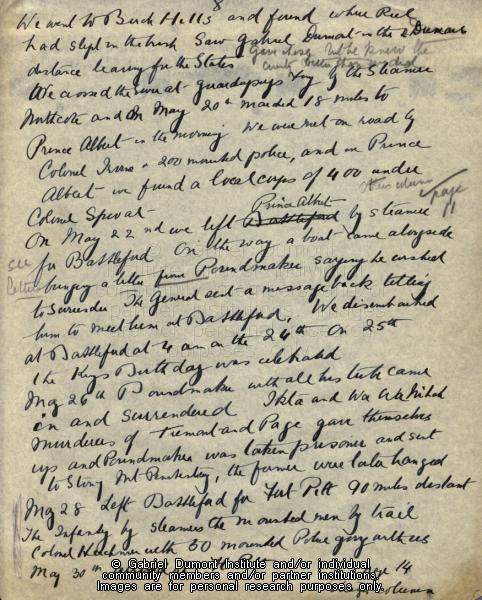 8
We went to Birch Hills and found where Riel
had slept in the bush Saw Gabriel Dumont in the Dumont
distance leaving for the States Gave chase but he knew the
country better than we did
We crossed the river at guardupuys Fy by the Steamer
Northcote and on May 20th marched 18 miles to
Prince Albert in the morning We were met on road by
Colonel Irvine & 200 mounted police, and in Prince
Albert we found a local corps of 400 under
Colonel Sproat
this column page 11
On May 22nd we left Prince Albert Battleford by steamer
for Battleford On the way a boat came alongside
see letter
bringing a letter from Poundmaker saying he wished
to surrender The General sent a message back telling
him to meet him at Battleford. We disembarked
at Battleford at 4 am on the 24th On 25th
the Kings Birthday was celebrated
May 26th Poundmaker with all his tribe came
in and surrendered Ikta and Wa Wa
murderers of Tremont and Page gave themselves
up and Poundmaker was taken prisoner and sent
to Stony Mt Penitentiary, the former were later hanged
May 28 Left Battleford for Fort Pitt 90 miles distant
The Infantry by steamers the mounted men by trail
Colonel Herchmer with 50 mounted Police going with us
May 30th
page 14
column
© Gabriel Dumont Institute and/or individual
community members and/or partner institutions.
Images are for personal research purposes only.